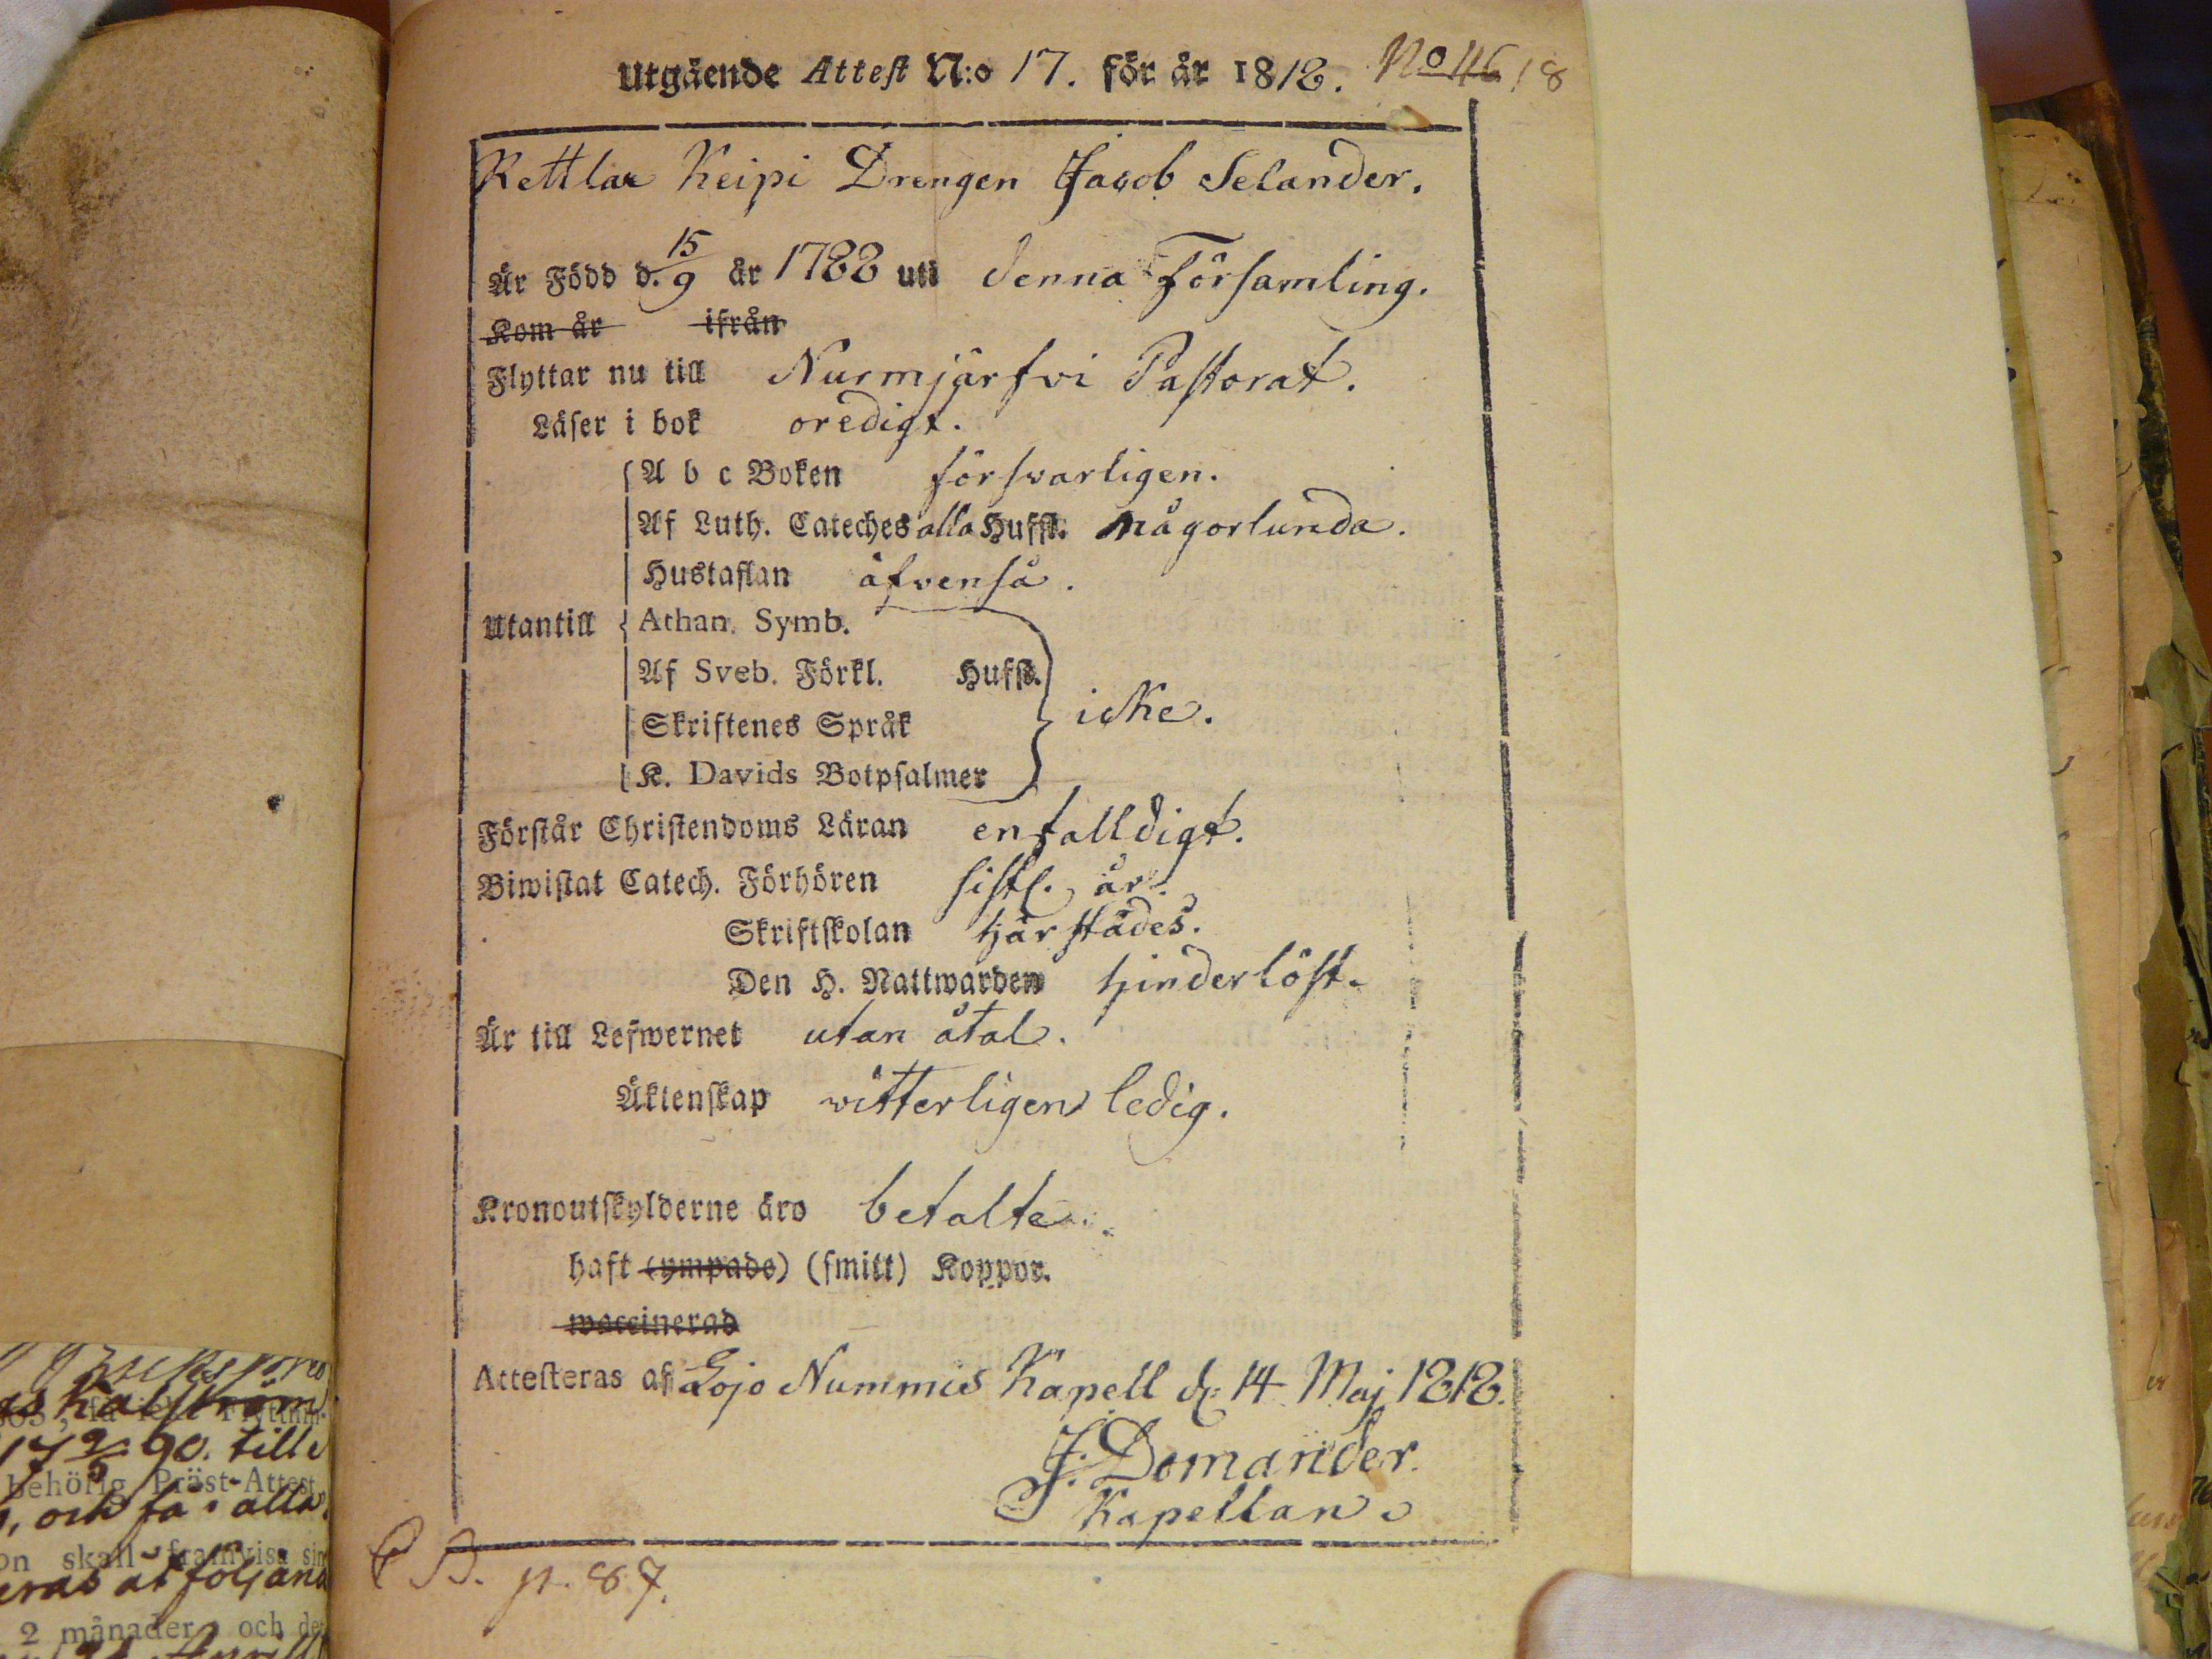 Utgående Attest N:o 17. för år 1818. No 46 18
Kettlar Keipi Drengen Jacob Selander.
Är Född d. 15/9 år 1788 uti denna Församling.
Kom år ifrån
Flyttar nu till Nurmjärfvi Pastorat.
Läser i bok oredigt.
A b c Boken försvarligen.
Af Luth. Cateches alla Hufst. någorlunda.
Hustaflan äfvenså.
Utantill Athan. Symb.
Af Sveb. Förkl. Hufst.
Skriftenes Språk
icke.
K. Davids Botpsalmer
Förstår Christendoms Läran enfalldigt.
Biwistat Catech. Förhören sistl. år.
Skriftskolan härstädes.
Den H. Nattwarden hinderlöst.
Är till Lefwernet utan åtal.
Äktenskap witterligen ledig.
Kronoutskylderne äro betalte.
haft (ympade) (smitt) Koppor.
waccinerad
Attesteras af Lojo Nummis Kapell d: 14 Maj 1818.
J. Domander.
Kapellan.
C B. p. 87.
as Kalström
90. till
behörig Präst-Attest
, och få i alla
on skall framvisa sin
2 månader och de